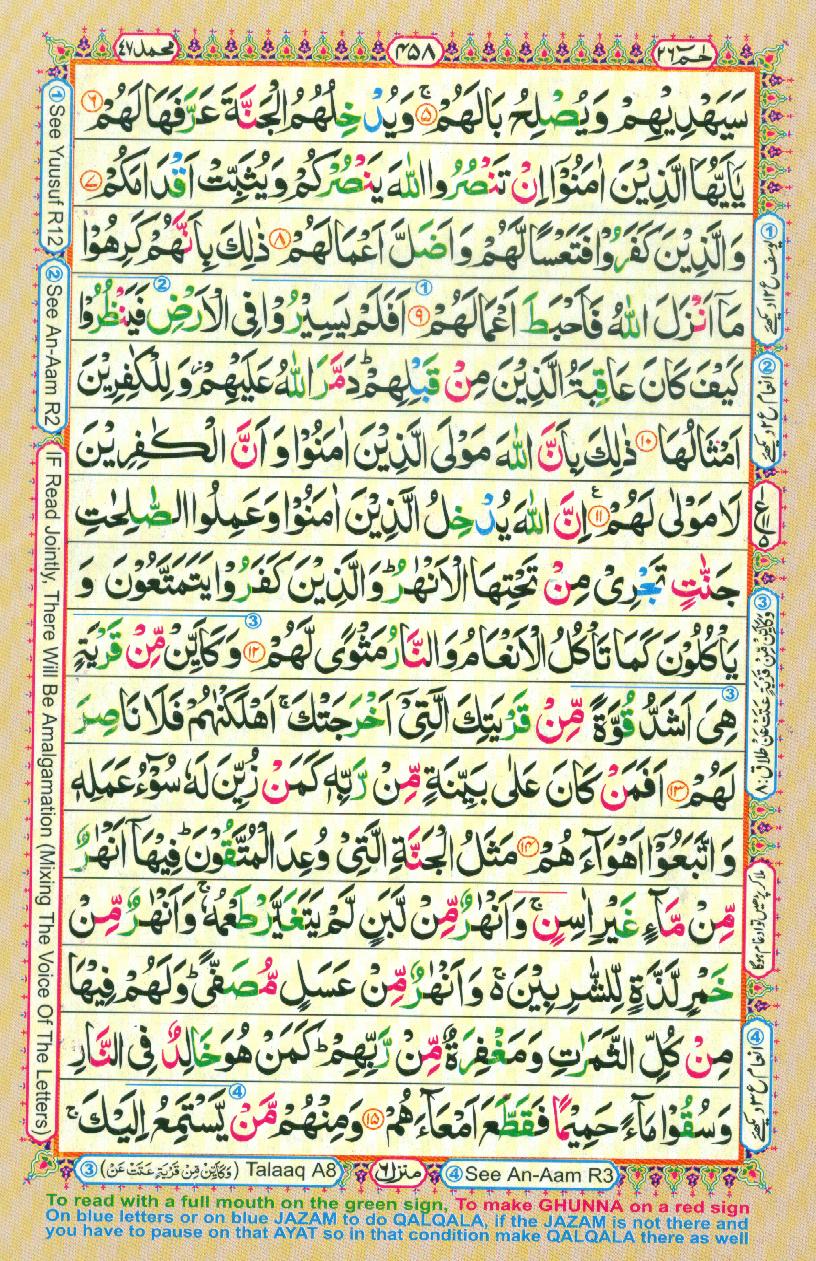 حٰمٓ ٢٦
٤٥٨
محمد ٤٧
سَيَهْدِيْهِمْ وَيُصْلِحُ بَالَهُمْ ۚ ﴿۵﴾ وَيُدْخِلُهُمُ الْجَنَّةَ عَرَّفَهَا لَهُمْ ﴿۶﴾
يٰۤاَيُّهَا الَّذِيْنَ اٰمَنُوْۤا اِنْ تَنْصُرُوا اللّٰهَ يَنْصُرْكُمْ وَيُثَبِّتْ اَقْدَامَكُمْ ﴿۷﴾
وَالَّذِيْنَ كَفَرُوْا فَتَعْسًا لَّهُمْ وَاَضَلَّ اَعْمَالَهُمْ ﴿۸﴾ ذٰلِكَ بِاَنَّهُمْ كَرِهُوْا
مَاۤ اَنْزَلَ اللّٰهُ فَاَحْبَطَ اَعْمَالَهُمْ ﴿۹﴾ اَفَلَمْ يَسِيْرُوْا فِى الْاَرْضِ فَيَنْظُرُوْا
كَيْفَ كَانَ عَاقِبَةُ الَّذِيْنَ مِنْ قَبْلِهِمْ ؕ دَمَّرَ اللّٰهُ عَلَيْهِمْ ؗ وَلِلْكٰفِرِيْنَ
اَمْثَالُهَا ﴿۱۰﴾ ذٰلِكَ بِاَنَّ اللّٰهَ مَوْلَى الَّذِيْنَ اٰمَنُوْا وَاَنَّ الْكٰفِرِيْنَ
لَا مَوْلٰى لَهُمْ ﴿۱۱﴾ اِنَّ اللّٰهَ يُدْخِلُ الَّذِيْنَ اٰمَنُوْا وَعَمِلُوا الصّٰلِحٰتِ
جَنّٰتٍ تَجْرِىْ مِنْ تَحْتِهَا الْاَنْهٰرُ ؕ وَالَّذِيْنَ كَفَرُوْا يَتَمَتَّعُوْنَ وَ
يَاْكُلُوْنَ كَمَا تَاْكُلُ الْاَنْعَامُ وَالنَّارُ مَثْوًى لَّهُمْ ﴿۱۲﴾ وَكَاَيِّنْ مِّنْ قَرْيَةٍ
هِىَ اَشَدُّ قُوَّةً مِّنْ قَرْيَتِكَ الَّتِىْۤ اَخْرَجَتْكَ ۚ اَهْلَكْنٰهُمْ فَلَا نَاصِرَ
لَهُمْ ﴿۱۳﴾ اَفَمَنْ كَانَ عَلٰى بَيِّنَةٍ مِّنْ رَّبِّهٖ كَمَنْ زُيِّنَ لَهٗ سُوْٓءُ عَمَلِهٖ
وَاتَّبَعُوْۤا اَهْوَآءَهُمْ ﴿۱۴﴾ مَثَلُ الْجَنَّةِ الَّتِىْ وُعِدَ الْمُتَّقُوْنَ ؕ فِيْهَاۤ اَنْهٰرٌ
مِّنْ مَّآءٍ غَيْرِ اٰسِنٍ ۚ وَاَنْهٰرٌ مِّنْ لَّبَنٍ لَّمْ يَتَغَيَّرْ طَعْمُهٗ ۚ وَاَنْهٰرٌ مِّنْ
خَمْرٍ لَّذَّةٍ لِّلشّٰرِبِيْنَ ۬ۚ وَاَنْهٰرٌ مِّنْ عَسَلٍ مُّصَفًّى ؕ وَلَهُمْ فِيْهَا
مِنْ كُلِّ الثَّمَرٰتِ وَمَغْفِرَةٌ مِّنْ رَّبِّهِمْ ؕ كَمَنْ هُوَ خَالِدٌ فِى النَّارِ
وَسُقُوْا مَآءً حَمِيْمًا فَقَطَّعَ اَمْعَآءَهُمْ ﴿۱۵﴾ وَمِنْهُمْ مَّنْ يَّسْتَمِعُ اِلَيْكَ ۚ
① یوسف ع ۱۲ دیکھئے
② انعام ع ۲ دیکھئے
③ وَكَاَيِّنْ مِّنْ قَرْيَةٍ عَتَتْ عَنْ طلاق: ۸
ملا کر پڑھیں تو ادغام ہوگا
④ انعام ع ۳ دیکھئے
① See Yuusuf R12
② See An-Aam R2
IF Read Jointly, There Will Be Amalgamation (Mixing The Voice Of The Letters)
③ (وَكَاَيِّنْ مِّنْ قَرْيَةٍ عَتَتْ عَنْ) Talaaq A8
منزل ٦
④ See An-Aam R3
To read with a full mouth on the green sign, To make GHUNNA on a red sign
On blue letters or on blue JAZAM to do QALQALA, if the JAZAM is not there and
you have to pause on that AYAT so in that condition make QALQALA there as well